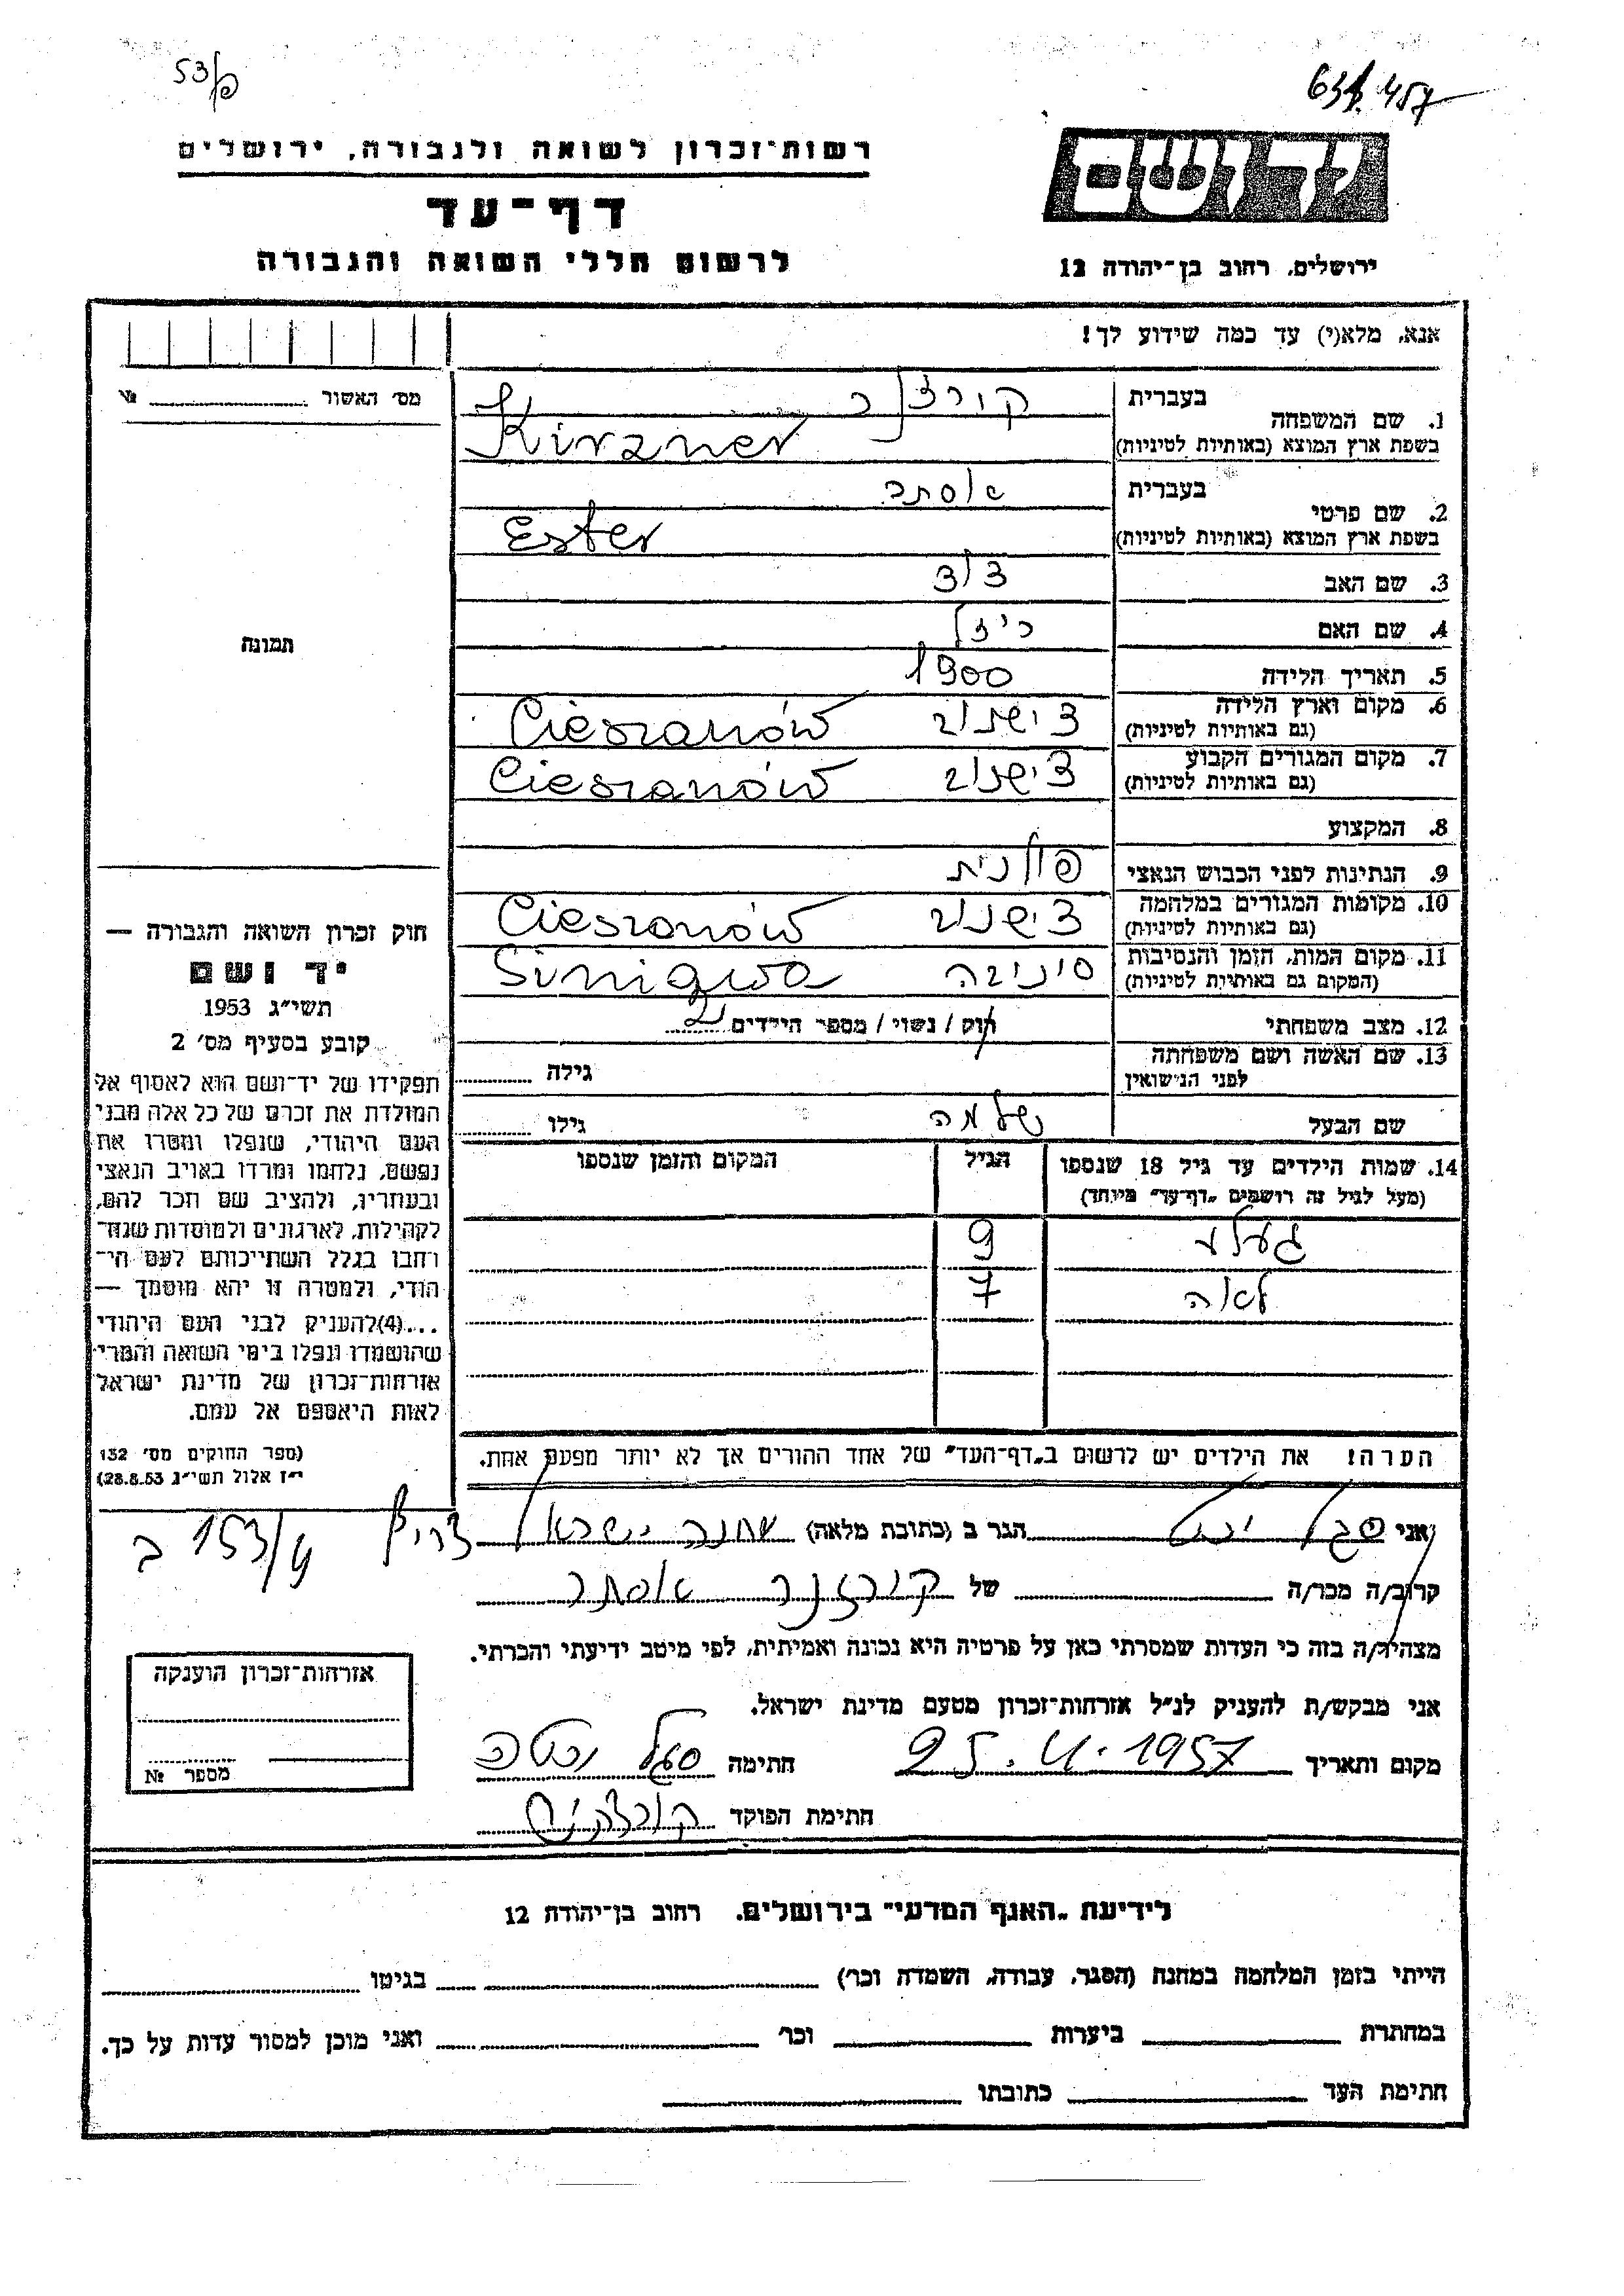 53/פ
רשות־זכרון לשואה ולגבורה, ירושלים
דף־עד
לרשום חללי השואה והגבורה
יד ושם
ירושלים, רחוב בן־יהודה 12
אנא, מלא(י) עד כמה שידוע לך!
מס׳ האשור № 
1. שם המשפחה
בעברית
בשפת ארץ המוצא (באותיות לטיניות)
Kirzner
2. שם פרטי
בעברית אסתר
בשפת ארץ המוצא (באותיות לטיניות)
Ester
3. שם האב
4. שם האם
5. תאריך הלידה 1900
6. מקום וארץ הלידה
(גם באותיות לטיניות)
צישנוב Cieszanów
7. מקום המגורים הקבוע
(גם באותיות לטיניות)
צישנוב Cieszanów
8. המקצוע
9. הנתינות לפני הכבוש הנאצי פולנית
10. מקומות המגורים במלחמה
(גם באותיות לטיניות)
צישנוב Cieszanów
11. מקום המות, הזמן והנסיבות
(המקום גם באותיות לטיניות)
סיניבה Siniawa
12. מצב משפחתי רוק / נשוי / מספר הילדים 2
13. שם האשה ושם משפחתה
לפני הנישואין
גילה
שם הבעל שלמה גילו
14. שמות הילדים עד גיל 18 שנספו
(מעל לגיל זה רושמים "דף־עד" מיוחד)
הגיל
המקום והזמן שנספו
9
לאה 7
הערה! את הילדים יש לרשום ב"דף־העד" של אחד ההורים אך לא יותר מפעם אחת.
תמונה
חוק זכרון השואה והגבורה —
יד ושם
תשי״ג 1953
קובע בסעיף מס׳ 2
תפקידו של יד־ושם הוא לאסוף אל
המולדת את זכרם של כל אלה מבני
העם היהודי, שנפלו ומסרו את
נפשם, נלחמו ומרדו באויב הנאצי
ובעוזריו, ולהציב שם וזכר להם,
לקהילות, לארגונים ולמוסדות שנח־
רבו בגלל השתייכותם לעם הי־
הודי, ולמטרה זו יהא מוסמך —
...(4) להעניק לבני העם היהודי
שהושמדו ונפלו בימי השואה והמרי
אזרחות־זכרון של מדינת ישראל
לאות היאספם אל עמם.
(ספר החוקים מס׳ 132
י״ז אלול תשי״ג 28.8.53)
אני סגל הגר ב (כתובת מלאה) שכונה ישראל צריף
153/4 ב
קרוב/ה מכר/ה של קורזנר אסתר
מצהיר/ה בזה כי העדות שמסרתי כאן על פרטיה היא נכונה ואמיתית, לפי מיטב ידיעתי והכרתי.
אני מבקש/ת להעניק לנ״ל אזרחות־זכרון מטעם מדינת ישראל.
מקום ותאריך 25.4.1957 חתימה סגל
חתימת הפוקד
אזרחות־זכרון הוענקה
מספר №
לידיעת "האגף המדעי" בירושלים, רחוב בן־יהודה 12
הייתי בזמן המלחמה במחנה (הסגר, עבודה, השמדה וכר׳) בגיטו
במחתרת ביערות וכר׳ ואני מוכן למסור עדות על כך.
חתימת העד כתובתו